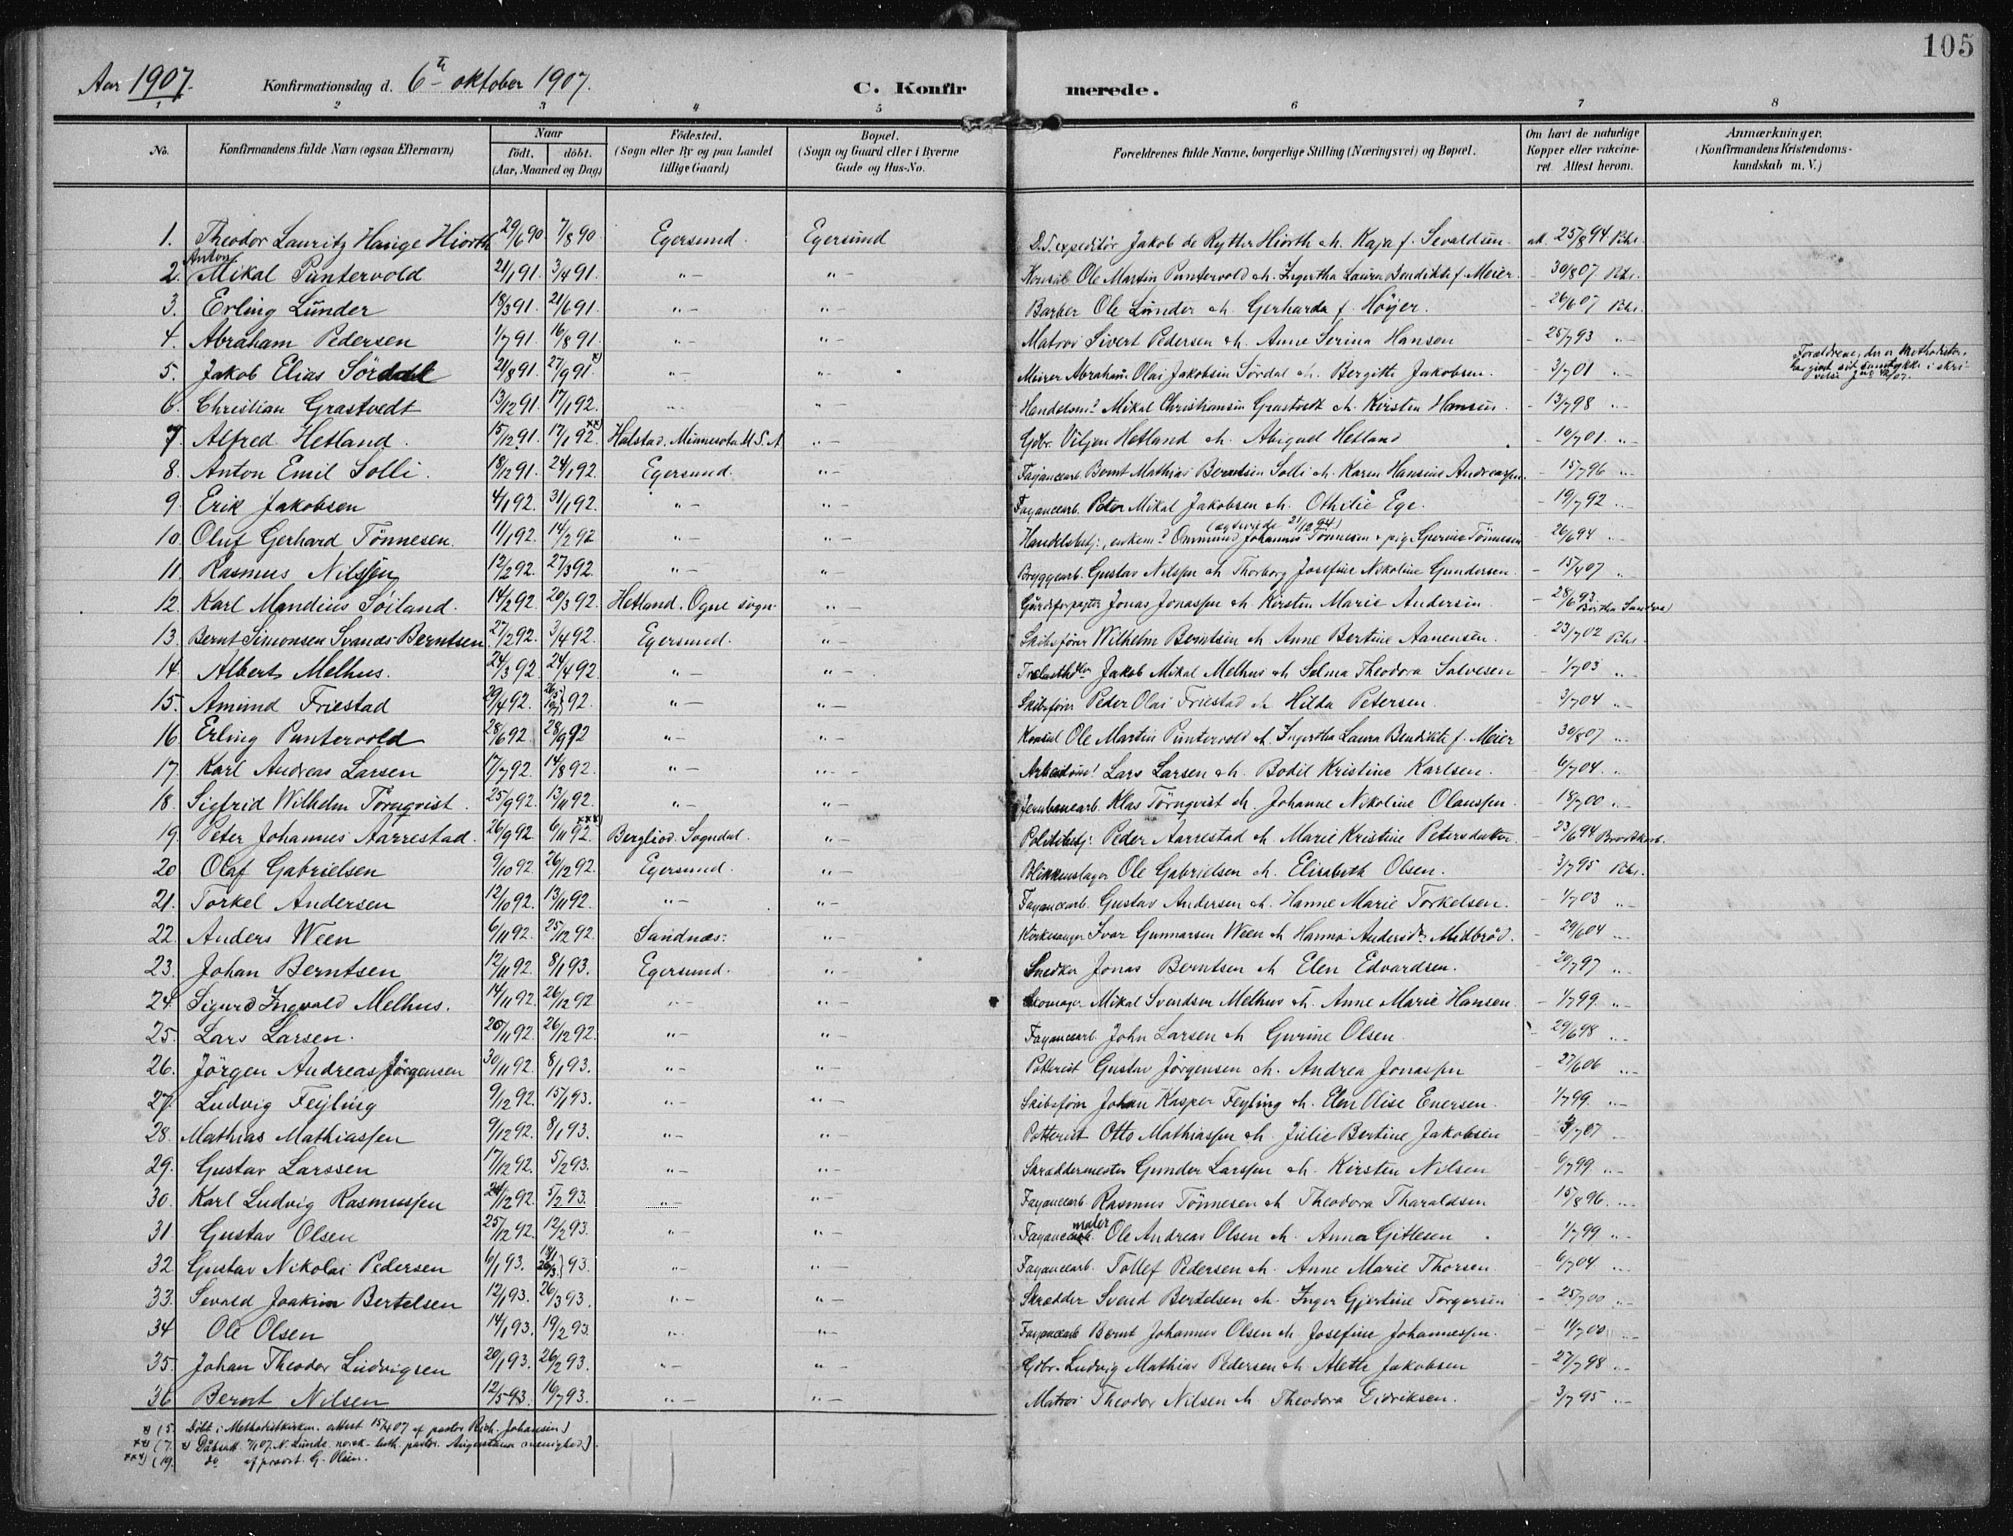 105
Aar 1907. Konfirmationsdag d. 6te oktober 1907. C. Konfirmerede.
1 2 3 4 5 6 7 8
No. Konfirmandens fulde Navn (ogsaa Efternavn) Naar født. døbt. (Aar, Maaned og Dag) Fødested. (Sogn eller By og paa Landet tillige Gaard) Bopæl. (Sogn og Gaard eller i Byerne Gade og Hus-No. Forældrenes fulde Navne, borgerlige Stilling (Næringsvei) og Bopæl. Om havt de naturlige Kopper eller vakcineret. Attest herom. Anmærkninger. (Konfirmandens Kristendomskundskab m. V.)
1. Theodor Lauritz Hauge Hiorth 29/6 90 7/8 90 Egersund. Egersund D.S.expeditör Jakob de Rytter Hiorth & h. Kaja f. Sevaldsen. att. 25/8 94 Bhr.
2. Anton Mikal Puntervold 21/1 91. 3/4 91. "- "- Konsul Ole Martin Puntervold & h. Ingertha Laura Bendikte f. Meier. - 30/8 07 Bhr.
3. Erling Lunder 18/3 91. 21/6 91. "- "- Barber Ole Lunder & h. Gerharda f. Höyer. - 26/6 07 Bhr.
4. Abraham Pedersen 1/7 91. 16/8 91. "- "- Matros Sivert Pedersen & h. Anne Serina Hansen - 25/7 93 "-
5. Jakob Elias Sördal 21/8 91. 27/9 91. x) "- "- Meirer Abraham Olai Jakobsen Sördal & h. Bergitte Jakobsen. - 3/7 01 "- Forældrene, der er Methodister, har givet sit samtykke i skrivelse
6. Christian Grastvedt 13/12 91. 17/1 92. "- "- Handelsm. Mikal Christiansen Grastvedt & h. Kirsten Hansen. - 13/7 98 "-
7. Alfred Hetland. 15/12 91. 17/1 92. xx) Halstad, Minnesota U.S.A. "- Gdbr. Viljen Hetland & h. Abigael Hetland - 10/7 01. "-
8. Anton Emil Solli. 18/12 91. 24/1 92. Egersund. "- Fayancearb. Bernt Mathias Berntsen Solli & h. Karen Hansine Andreassen. - 15/7 96 "-
9 Erik Jakobsen 4/1 92. 31/1 92. "- "- Fayancearb. Peter Mikal Jakobsen & h. Othilie Ege. - 19/7 92 "-
10. Oluf Gerhard Tönnesen. 11/1 92. 14/2 92 "- "- Handelsbetj., enkem. Ommund Johannes Tönnesen & pige Gurine Tönnesen (ægteviede 21/12 94) - 26/6 94 "-
11. Rasmus Nilssen 12/2 92. 27/3 92. "- "- Bryggearb. Gustav Nilssen & h. Thorborg Josefine Nikoline Gundersen. - 15/4 07 "-
12. Karl Mandius Söiland. 14/2 92. 20/3 92. Hetland. Ogne sogn. "- Gårdsforpagter Jonas Jonassen & h. Kirsten Marie Andersen. - 28/6 93. Bertha Sandve
13. Bernt Simonsen Svanes Berntsen 27/2 92. 3/4 92. Egersund. "- Skibsförer Wilhelm Berntsen & h. Anne Bertine Aanensen. - 23/7 02 Bhr.
14. Albert Melhus. 24/3 92 24/4 92. "- "- Jakob Mikal Melhus & h. Selma Theodora Salvesen - 1/7 03 "-
15. Amund Friestad 29/4 92. "- "- Skibsförer Peder Olai Friestad & h. Hilda Petersen. - 3/7 04 "-
16. Erling Puntervold 28/6 92. 28/9 92 "- "- Konsul Ole Martin Puntervold & h. Ingertha Laura Bendikte f. Meier - 30/8 07 "-
17. Karl Andreas Larsen 17/7 92. 14/8 92. "- "- Arbeidsm. Lars Larsen & h. Bodil Kristine Karlsen. - 6/7 04. "-
18. Sigfrid Wilhelm Törnqvist. 25/9 92. 13/11 92. "- "- Jernbanearb. Klas Törnqvist & h. Johanne Nikoline Olaussen. - 18/7 00 "-
19. Peter Johannes Aarrestad. 26/9 92. 6/11 92. xxx) Bergliod. Sogndal. "- Politibetj. Peder Aarrestad & h. Marie Kristine Petersdatter. - 23/6 94
20 Olaf Gabrielsen 9/10 92. 26/12 92. Egersund. "- Blikkenslager Ole Gabrielsen & h. Elisabeth Olsen. - 3/7 95 Bhr.
21. Torkel Andersen 12/10 92. 13/11 92. "- "- Fayancearb. Gustav Andersen & h. Hanne Marie Torkelsen. - 1/7 03 "-
22. Anders Ween 6/11 92. 25/12 92. Sandnæs. "- Kirkesanger Ivar Gunnarsen Ween & h. Hanna Andersdtr. Midbröd. - 29/6 04 "-
23. Johan Berntsen 12/11 92. 8/1 93. Egersund. "- Snedker Jonas Berntsen & h. Elen Edvardsen. - 20/7 97 "-
24. Sigurd Ingvald Melhus. 14/11 92. 26/12 92 "- "- Skomager Mikal Svendsen Melhus & h. Anne Marie Hansen. - 4/7 99. "-
25. Lars Larsen. 26/11 92. 26/12 92. "- "- Fayancearb. John Larsen & h. Gurine Olsen. - 29/6 98 "-
26. Jörgen Andreas Jörgensen 30/11 92. 8/1 93. "- "- Potterist Gustav Jörgensen & h. Andrea Jonassen - 27/6 06 "-
27. Ludvig Feyling 9/12 92. 15/1 93. "- "- Skibsförer Johan Kasper Feyling & h. Elen Olise Enersen. - 1/7 99. "-
28. Mathias Mathiassen 9/12 92. 8/1 93. "- "- Potterist Otto Mathiassen & h. Julie Bertine Jakobsen - 3/7 07 "-
29. Gustav Larssen 17/12 92. 5/2 93. "- "- Skræddermester Gunder Larssen & h. Kirsten Nilsen - 6/7 99. "-
30. Karl Ludvig Rasmussen 24/12 92. 5/2 93. "- "- Fayancearb. Rasmus Tönnesen & h. Theodora Tharaldsen - 15/8 96. "-
31 Gustav Olsen 25/12 92. 12/2 93. "- "- Fayancemaler Ole Andreas Olsen & h. Anna Gitlesen - 1/7 99 "-
32. Gustav Nikolai Pedersen 6/1 93. 18/1 26/3 } 93. "- "- Fayancearb. Tollef Pedersen & h. Anne Marie Thorsen. - 6/7 04 "-
33. Sevald Joakim Bertelsen 12/1 93. 26/3 93. "- "- Skrædder Svend Bertelsen & h. Inger Gjertine Torgersen - 25/7 00 "-
34 Ole Olsen 14/1 93. 19/2 93. "- "- Fayancearb. Bernt Johannes Olsen & h. Josefine Johannessen. - 11/7 00 "-
35. Johan Theodor Ludvigsen 20/1 93. 26/2 93. "- "- Gdbr. Ludvig Mathias Pedersen & h. Alethe Jakobsen - 27/7 98 "-
36 Bernt Nilsen 12/5 93. 16/7 93. "- "- Matros Theodor Nilsen & h. Theodora Eidriksen. - 3/7 95 "-
x) (5. Döbt i Methodistkirken. attest 15/4 07 af pastor Rich. Johansen)
xx) (7. Dåbsatt. 7/1 07. N. Lunde norsk-luth. pastor. Augustana menighed).
xxx) (19. do af provst. G. Olsen.